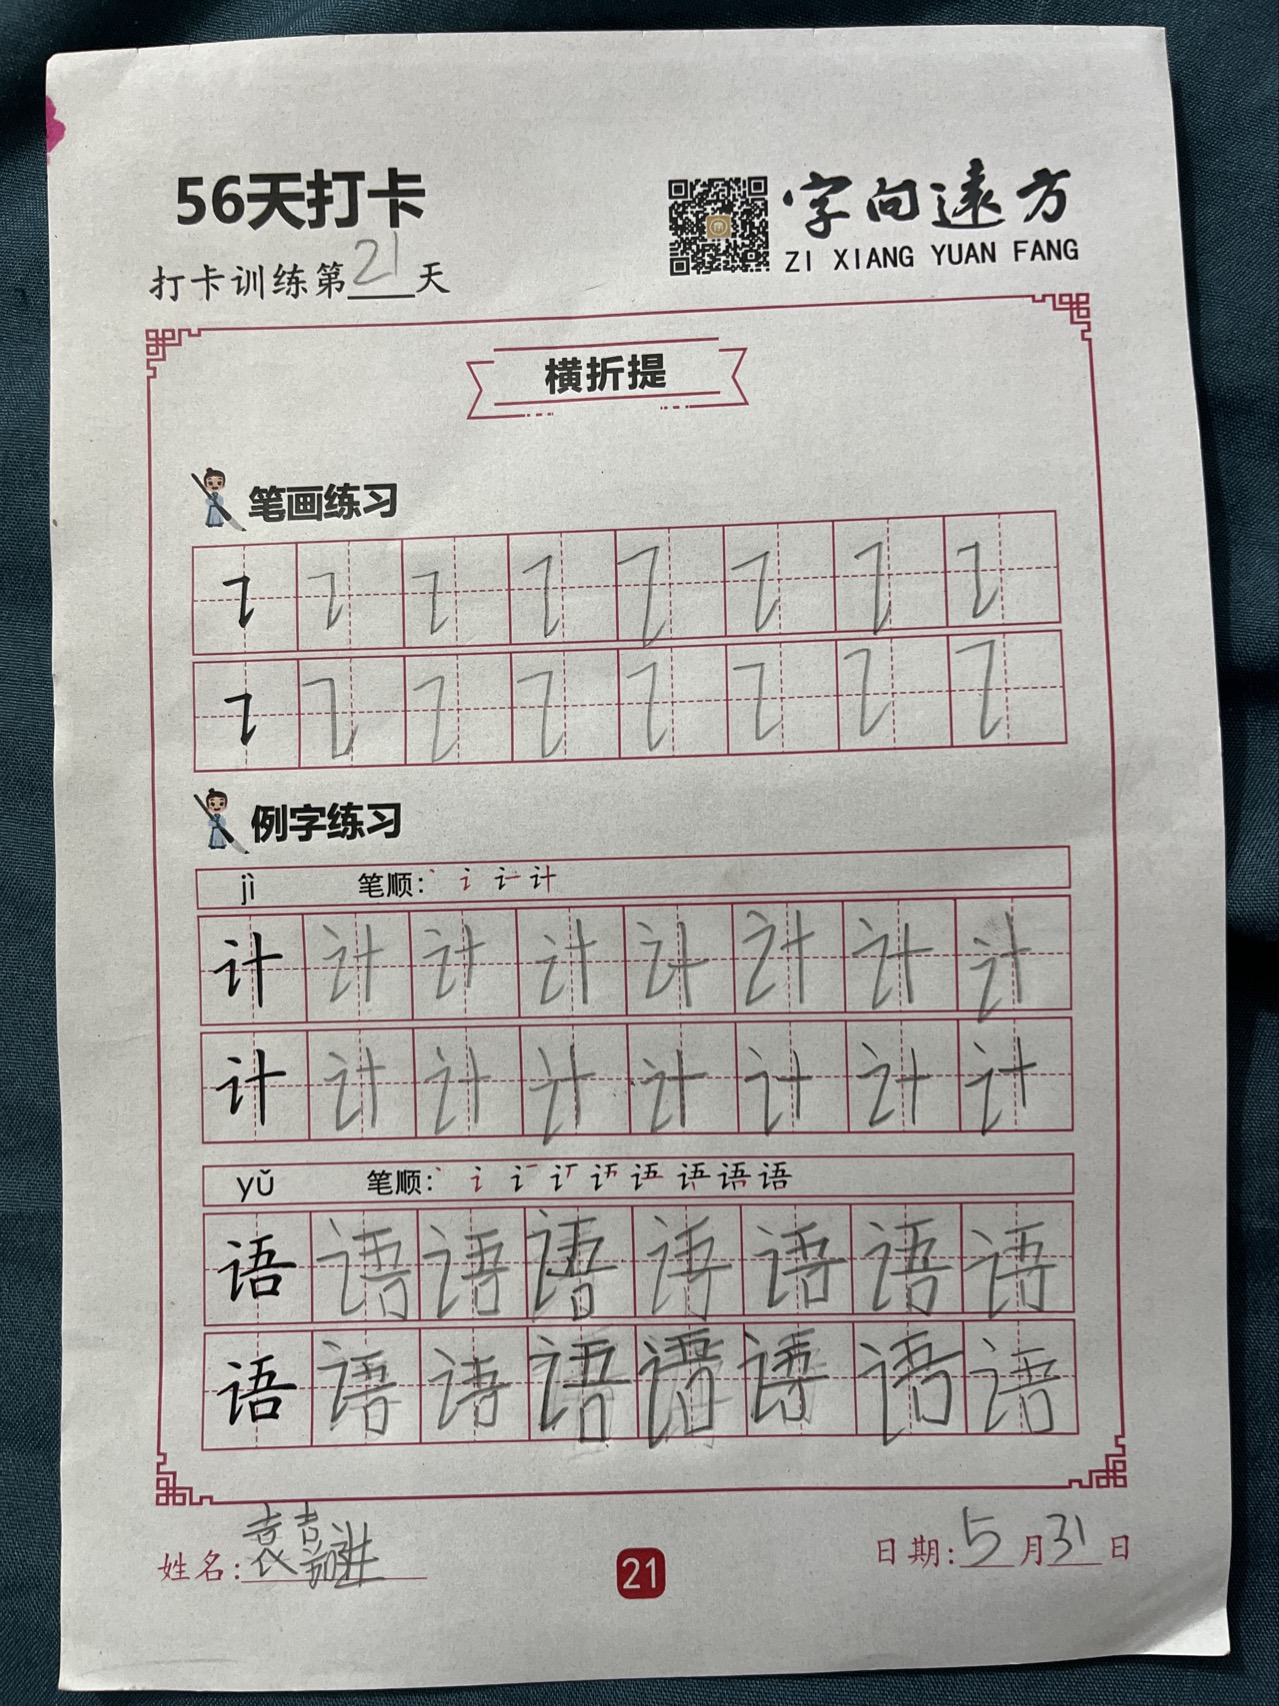 56天打卡
字向远方
ZI XIANG YUAN FANG
打卡训练第21天
横折提
笔画练习
㇊ ㇊ ㇊ ㇊ ㇊ ㇊ ㇊ ㇊
㇊ ㇊ ㇊ ㇊ ㇊ ㇊ ㇊ ㇊
例字练习
jì 笔顺: 计
计 计 计 计 计 计 计 计
计 计 计 计 计 计 计 计
yǔ 笔顺: 语
语 语 语 语 语 语 语 语
语 语 语 语 语 语 语 语
姓名:袁嘉
21
日期:5月31日